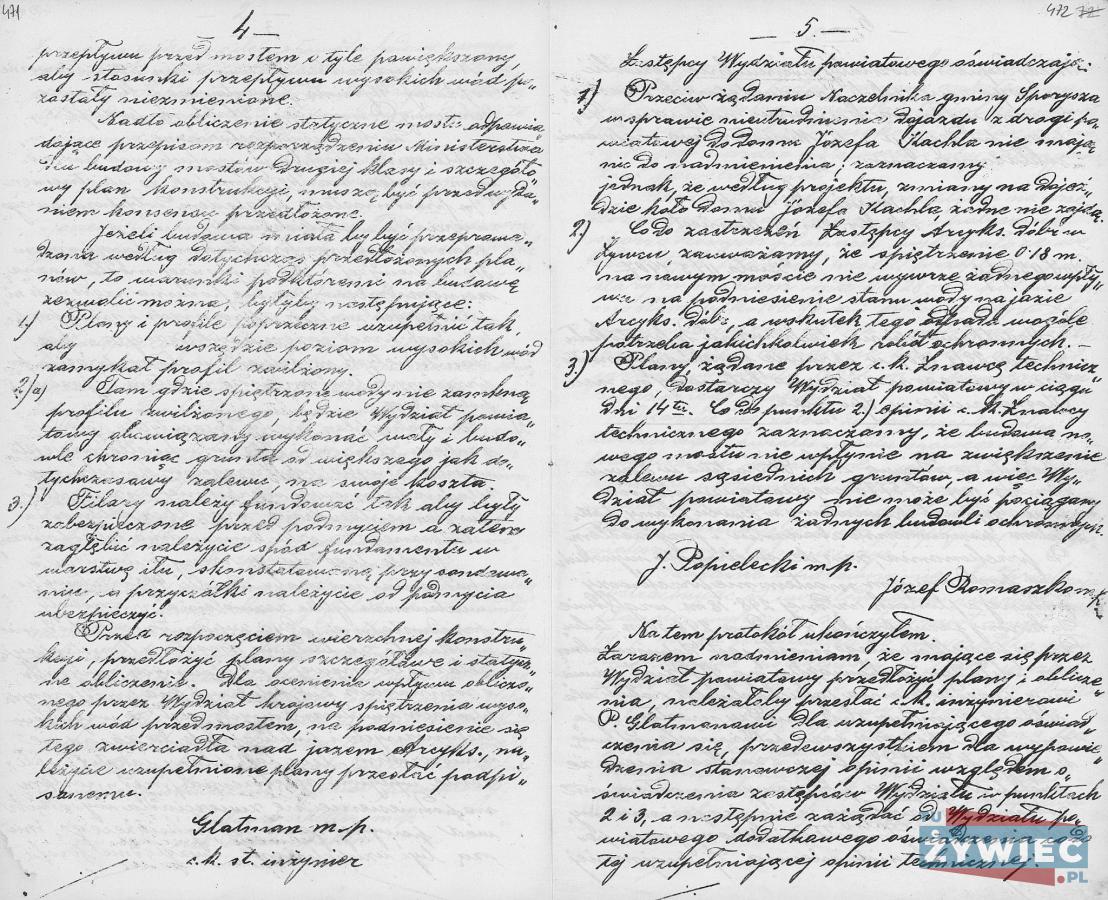 471
— 4 —
przepływu przed mostem o tyle powiększony,
aby stosunki przepływu wysokich wód po„
zostały niezmienione.
Nadto obliczenie statyczne mostu odpowia„
dające przepisom rozporządzenia Ministerstwa
dla budowy mostów drugiej klasy i szczegóło„
wy plan konstrukcji, muszą być przed wyda„
niem konsensu przedłożone.
Jeżeli budowa miała by być przeprowa„
dzona według dotychczas przedłożonych pla„
nów, to warunki pod któremi na budowę
zezwolić można, byłyby następujące:
1.) Plany i profile poprzeczne uzupełnić tak,
aby wszędzie poziom wysokich wód
zamykał profil zwilżony.
2.) a) Tam gdzie spiętrzone wody nie zamkną
profilu zwilżonego, będzie Wydział powia„
towy obowiązany wykonać wały i budo„
wle chroniąc grunta od większego jak do„
tychczasowy zalewu, na swoje koszta.
3.) Filary należy fundować tak aby były
zabezpieczone przed podmyciem a zatem
zagłębić należycie spód fundamentu w
warstwę iłu, skonstatowaną przy sondowa„
niu, a przyczółki należycie od podmycia
ubezpieczyć.
Przed rozpoczęciem wierzchniej konstru„
kcji, przedłożyć plany szczegółowe i statycz„
ne obliczenia. Dla ocenienia wpływu obliczo„
nego przez Wydział krajowy spiętrzenia wyso„
kich wód przed mostem, na podniesienie się
tego zwierciadła nad jazem Arcyks., na„
leżycie uzupełnione plany przesłać podpi„
sanemu.
Glatman m.p.
c.k. st. inżynier
472
— 5 —
Zastępcy Wydziału powiatowego oświadczają:
1) Przeciw żądaniu Naczelnika gminy Sporysza
w sprawie nieutrudnienia dojazdu z drogi po„
wiatowej do domu Józefa Kachla nie mają
nic do nadmienienia; zaznaczamy
jednak, że według projektu, zmiany na dojeź„
dzie koło domu Józefa Kachla żadne nie zajdą.
2.) Co do zastrzeżeń Zastępcy Arcyks. dóbr w
Żywcu, zauważamy, że spiętrzenie 0·18 m.
na nowym moście nie wywrze żadnego wpły„
wu na podniesienie stanu wody na jazie
Arcyks. dóbr, a wskutek tego odpada wogóle
potrzeba jakichkolwiek robót ochronnych. –
3.) Plany, żądane przez c.k. Znawcę technicz„
nego, dostarczy Wydział powiatowy w ciągu
dni 14tu. Co do punktu 2.) opinii c.k. Znawcy
technicznego zaznaczamy, że budowa no„
wego mostu nie wpłynie na zwiększenie
zalewu sąsiednich gruntów, a więc Wy„
dział powiatowy nie może być pociągany
do wykonania żadnych budowli ochronnych.
J. Popielecki m.p.
Józef Romaszko m.p.
Na tem protokół ukończyłem.
Zarazem nadmieniam, że mające się przez
Wydział powiatowy przedłożyć plany i oblicze„
nia, należałoby przesłać c.k. inżynierowi
P. Glatmanowi dla uzupełniającego oświad„
czenia się, przedewszystkiem dla wypowie„
dzenia stanowczej opinii względem o„
świadczenia zastępców Wydziału w punktach
2 i 3, a następnie zażądać od Wydziału po„
wiatowego dodatkowego oświadczenia co do
tej uzupełniającej opinii technicznej.
ŻYWIEC
.PL